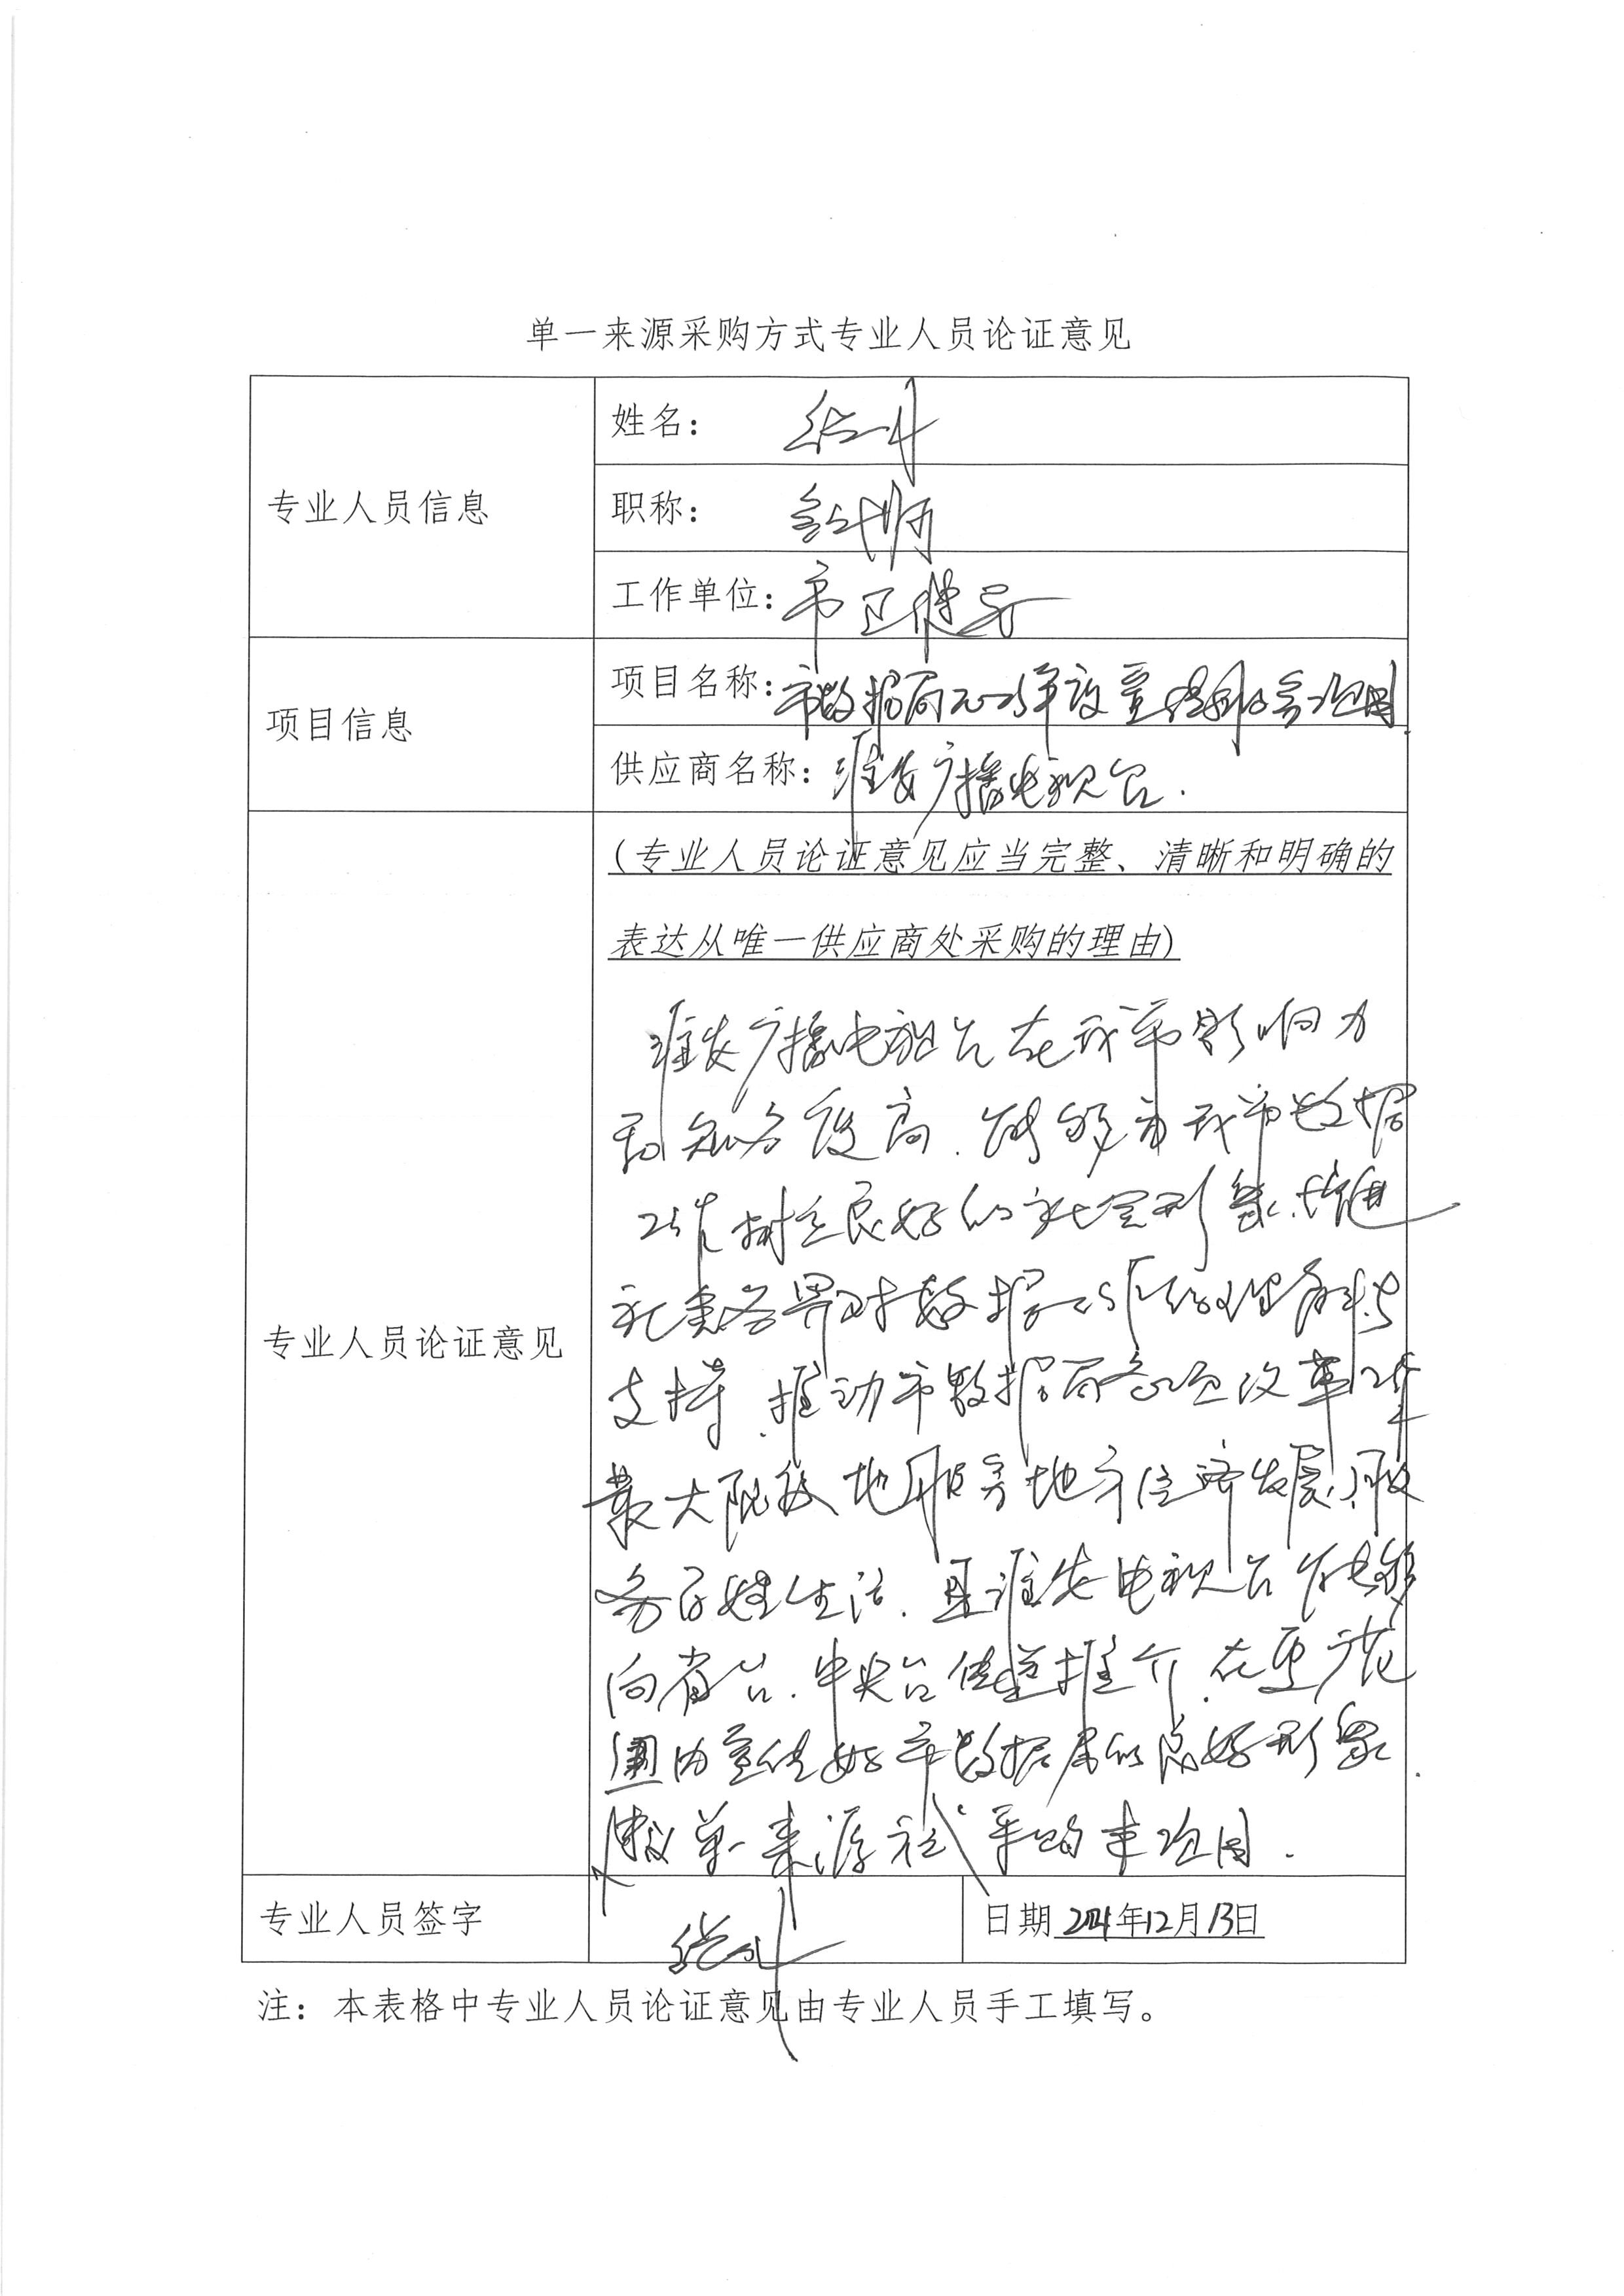 单一来源采购方式专业人员论证意见
专业人员信息
姓名：
职称：
工作单位：市
项目信息
项目名称：市数据局2025年度宣传服务项目
供应商名称：淮安广播电视台.
专业人员论证意见
(专业人员论证意见应当完整、清晰和明确的
表达从唯一供应商处采购的理由)
淮安广播电视台在我市影响力
和知名度高.能够为我市数据
工作树立良好的社会形象.增进
社会各界对数据工作的理解与
支持.推动市数据局各项改革工作
最大限度地服务地方经济发展.服
务百姓生活.且淮安电视台能够
向省台.中央台推介.在更广范
围内宣传好市数据局的良好形象.
建议单一来源方式采购本项目.
专业人员签字
日期2024年12月13日
注：本表格中专业人员论证意见由专业人员手工填写。